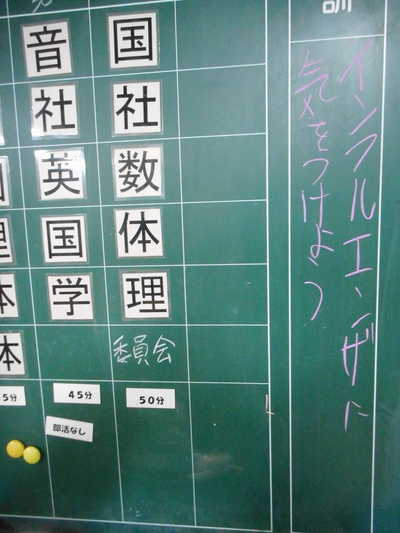 訓
インフルエンザに
気をつけよう
国
社
数
体
理
委員会
50分
音
社
英
国
学
45分
部活なし
理
体
体
5分